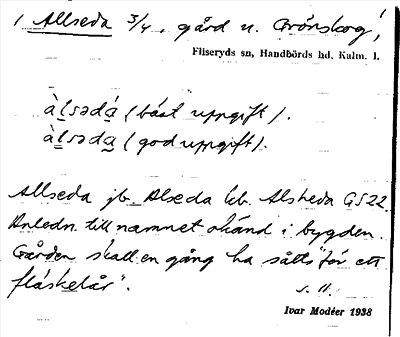 1 Allseda 3/4, gård u. Grönskog,
Fliseryds sn, Handbörds hd. Kalm. l.
àl̲sədá̲ (bäst uppgift).
àl̲səda̲ (god uppgift).
Allseda jb. Alseda kb. Alsheda GS22.
Anledn. till namnet okänd i bygden.
Gården skall en gång ha sålts "för ett
fläskelår". s. 11.
Ivar Modéer 1938